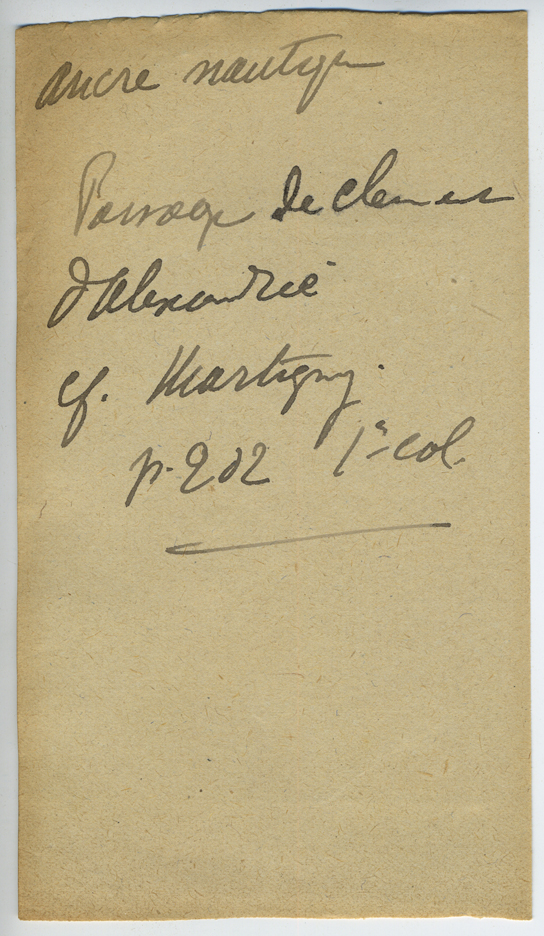 ancre nautique
Passage de Clement
d'Alexandrie
cf. Martigny.
p. 282 1e col.